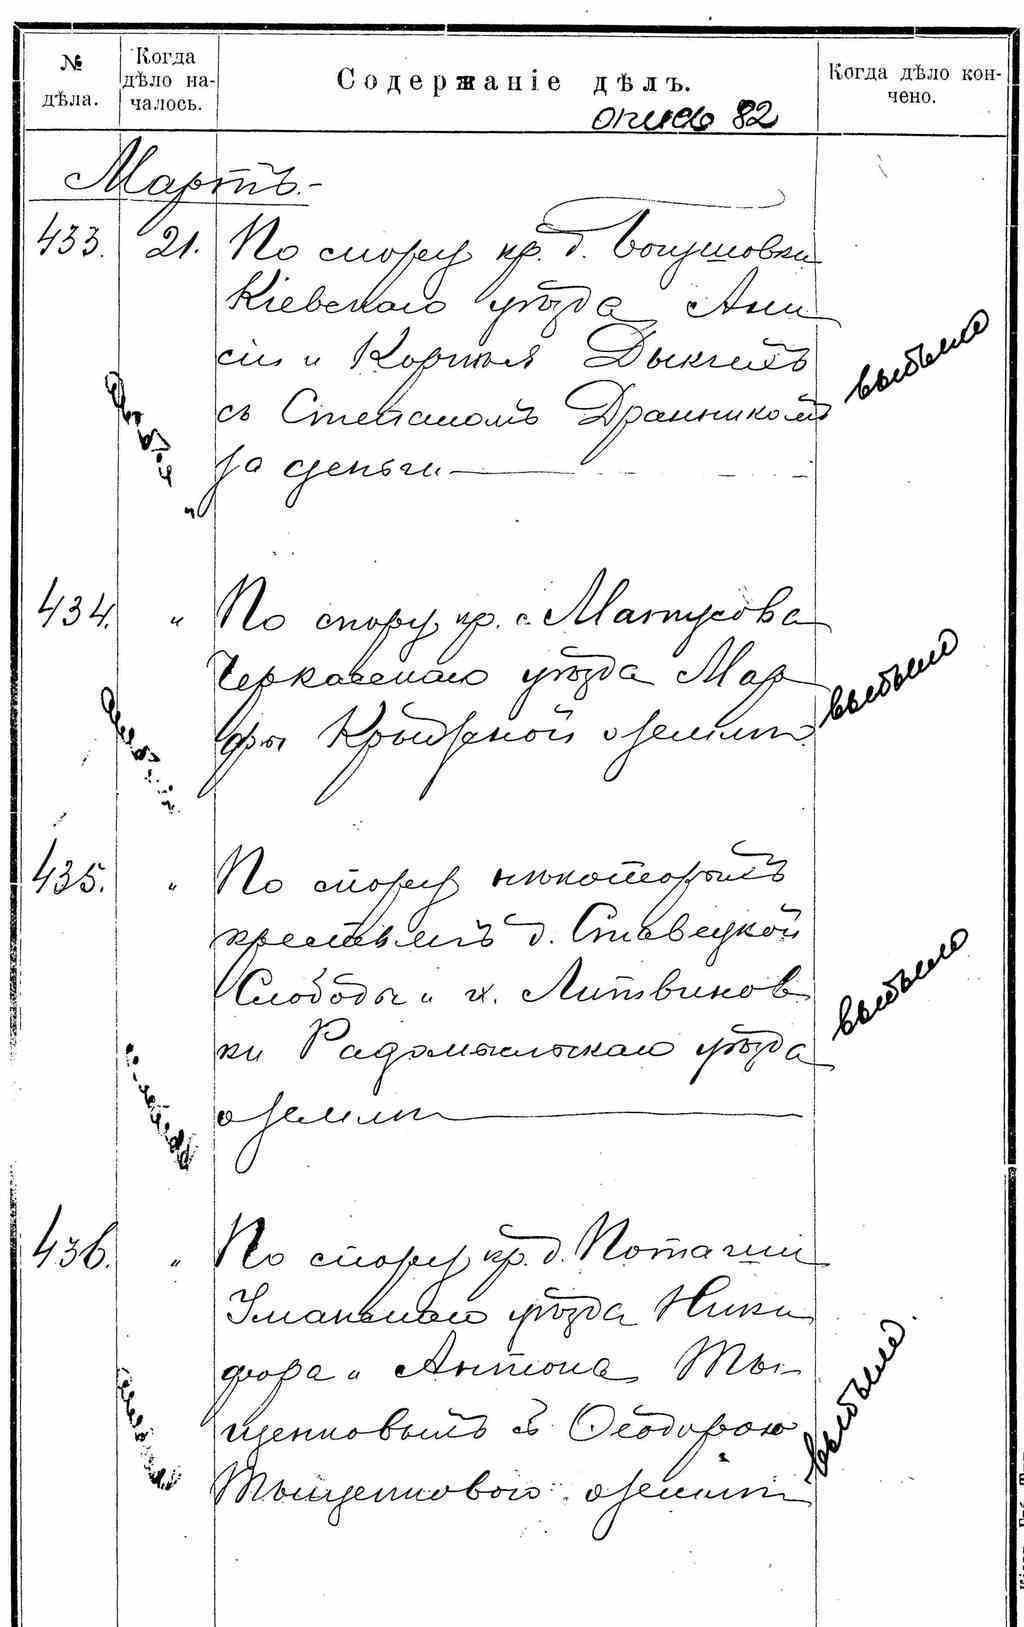 № дѣла.
Когда дѣло на-
чалось.
Содержаніе дѣлъ.
Когда дѣло кон-
чено.
опись 82
Мартъ.-
433. 21. По спору кр. д. Богушовки
Кіевскаго уѣзда Ани
сіи и Корнія Дыкихъ
съ Степаномъ Дранникомъ
за деньги
выбыло
434. " По спору кр. с. Матусова
Черкасскаго уѣзда Мар
фы о землѣ.
выбыло
435. " По спору нѣкоторыхъ
крестьянъ д. Ставецкой
Слободы и х. Литвинов
ки Радомысльскаго уѣзда
о землѣ
выбыло
436. " По спору кр. д. Поташни
Уманскаго уѣзда Ники
фора и Антона Ты-
щенковыхъ съ Ѳеодорою
Тыщенковою о землѣ
выбыло.